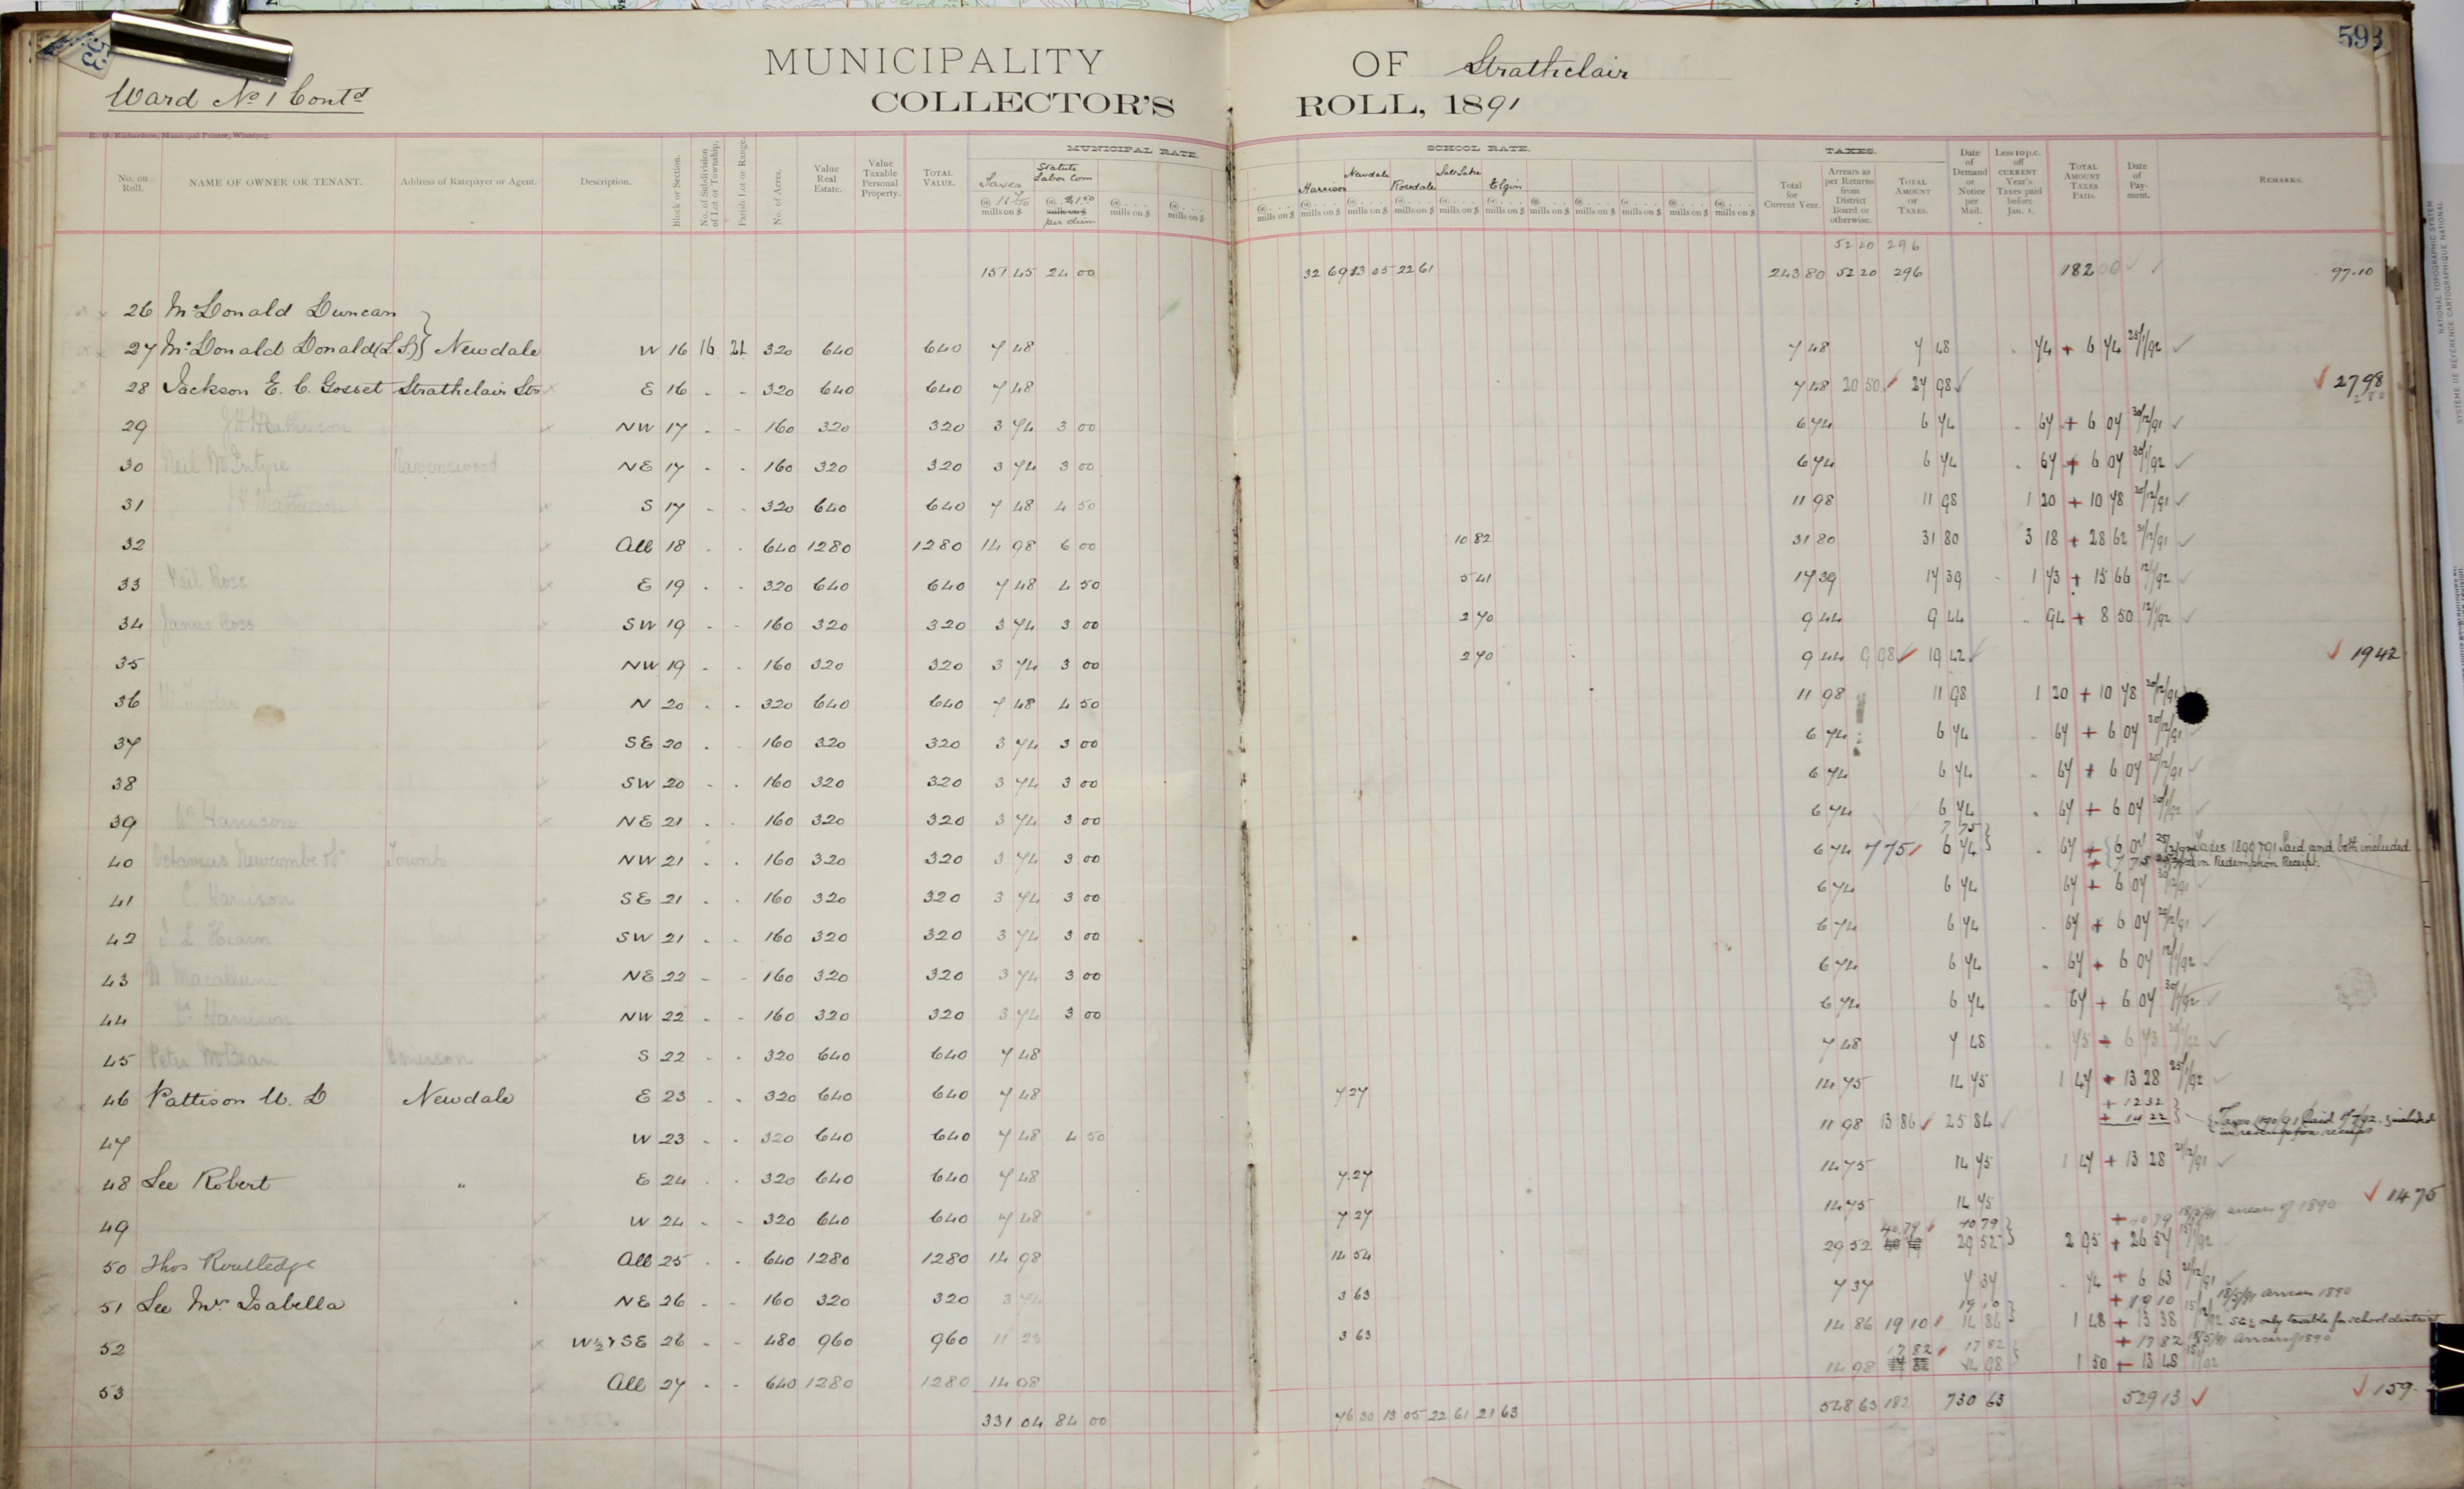 593
53
MUNICIPALITY OF Strathclair
Ward No 1 Contd
COLLECTOR'S ROLL, 1891
R. D. Richardson, Municipal Printer, Winnipeg.
MUNICIPAL RATE. SCHOOL RATE. TAXES.
No. on Roll. NAME OF OWNER OR TENANT. Address of Ratepayer or Agent. Description. Block or Section. No. of Subdivision of Lot or Township. Parish Lot or Range. No. of Acres. Value Real Estate. Value Taxable Personal Property. TOTAL VALUE. Taxes mills on $ Statute Labor Com @ $1.50 mills on $ per diem mills on $ mills on $ mills on $ Harrison Newdale Rosedale Salt Lake Elgin mills on $ Total for Current Year. Arrears as per Returns from District Board or otherwise. TOTAL AMOUNT OF TAXES. Date of Demand or Notice per Mail. Less 10 p.c. off CURRENT Year's Taxes paid before Jan. 1. TOTAL AMOUNT TAXES PAID. Date of Payment. REMARKS.
52 20 296
151 45 24 00 32 69 13 05 22 61 243 80 52 20 296 182 00 97.10
26 McDonald Duncan
27 McDonald Donald (L.S.) Newdale W 16 16 21 320 640 640 7 48 7 48 7 48 74 + 6 74 25/1/92 ✓
28 Jackson E. C. Gosset Strathclair Stn E 16 - - 320 640 640 7 48 7 48 20 50 ✓ 27 98 ✓ ✓ 27 98
29 J H Mathieson NW 17 - - 160 320 320 3 74 3 00 6 74 6 74 67 + 6 07 30/12/91 ✓
30 Neil McIntyre Ravenswood NE 17 - - 160 320 320 3 74 3 00 6 74 6 74 67 + 6 07 30/1/92 ✓
31 J H Mathieson S 17 - - 320 640 640 7 48 4 50 11 98 11 98 1 20 + 10 78 30/12/91 ✓
32 All 18 - - 640 1280 1280 14 98 6 00 10 82 31 80 31 80 3 18 + 28 62 31/12/91 ✓
33 Neil Ross E 19 - - 320 640 640 7 48 4 50 5 41 17 39 17 39 1 73 + 15 66 12/1/92 ✓
34 James Ross SW 19 - - 160 320 320 3 74 3 00 2 70 9 44 9 44 94 + 8 50 12/1/92 ✓
35 NW 19 - - 160 320 320 3 74 3 00 2 70 9 44 9 98 ✓ 19 42 ✓ ✓ 19 42
36 N 20 - - 320 640 640 7 48 4 50 11 98 11 98 1 20 + 10 78 30/12/91
37 SE 20 - - 160 320 320 3 74 3 00 6 74 6 74 67 + 6 07 30/12/91
38 SW 20 - - 160 320 320 3 74 3 00 6 74 6 74 67 + 6 07 30/12/91 ✓
39 Harrison NE 21 - - 160 320 320 3 74 3 00 6 74 6 74 67 + 6 07 30/1/92 ✓
7 75
40 Octavius Newcombe Toronto NW 21 - - 160 320 320 3 74 3 00 6 74 7 75 6 74 67 + 6 07 Taxes 1890 & 91 Paid and both included
+ 7 75 in Redemption Receipt.
41 C Harrison SE 21 - - 160 320 320 3 74 3 00 6 74 6 74 67 + 6 07 30/12/91 ✓
42 L Hearn SW 21 - - 160 320 320 3 74 3 00 6 74 6 74 67 + 6 07 29/12/91 ✓
43 D Macallum NE 22 - - 160 320 320 3 74 3 00 6 74 6 74 67 + 6 07 12/1/92 ✓
44 Harrison NW 22 - - 160 320 320 3 74 3 00 6 74 6 74 67 + 6 07 30/1/92 ✓
45 Peter McBean Emerson S 22 - - 320 640 640 7 48 7 48 7 48 75 + 6 73 30/1/92 ✓
46 Pattison W. D Newdale E 23 - - 320 640 640 7 48 7 27 14 75 14 75 1 47 + 13 28 25/1/92 ✓
+ 12 32
47 W 23 - - 320 640 640 7 48 4 50 11 98 13 86 ✓ 25 84 ✓ + 14 22 Taxes 1890/91 Paid 9/7/92 included
in redemption receipt
48 Lee Robert " E 24 - - 320 640 640 7 48 7.27 14 75 14 75 1 47 + 13 28 21/12/91 ✓
49 W 24 - - 320 640 640 7 48 7 27 14 75 14 75 ✓ 14 75
40.79 40 79 + 40 79 18/5/91 arrears of 1890
50 Thos Routledge All 25 - - 640 1280 1280 14 98 14 54 29 52 29 52 2 95 + 26 57 15/1/92
51 Lee Mrs Isabella NE 26 - - 160 320 320 3 74 3 63 7 37 7 37 74 + 6 63 21/12/91 ✓
19 10 + 19 10 18/5/91 arrears 1890
52 W½ & SE 26 - - 480 960 960 11 23 3 63 14 86 19 10 14 86 1 48 + 13 38 15/1/92 SE¼ only taxable for school district
17 82 17 82 + 17 82 18/5/91 arrears of 1890
53 All 27 - - 640 1280 1280 14 98 14 98 14 98 1 50 + 13 48 15/1/92
331 04 84 00 76 30 13 05 22 61 21 63 548 63 182 730 63 529 13 ✓ ✓ 159.
NATIONAL TOPOGRAPHIC SYSTEM
SYSTÈME DE RÉFÉRENCE CARTOGRAPHIQUE NATIONAL